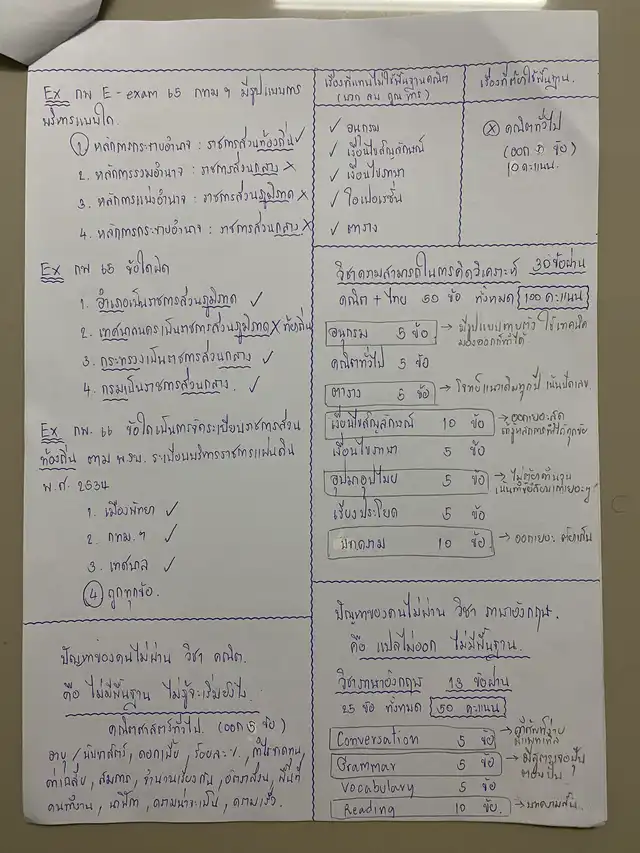 Ex กพ E-exam 65 กทม ฯ มีรูปแบบการ
บริหารแบบใด.
① หลักการกระจายอำนาจ : ราชการส่วนท้องถิ่น ✓
2. หลักการรวมอำนาจ : ราชการส่วนกลาง ✗
3. หลักการแบ่งอำนาจ : ราชการส่วนภูมิภาค ✗
4. หลักการกระจายอำนาจ : ราชการส่วนกลาง ✗
Ex กพ 65 ข้อใดผิด
1. อำเภอเป็นราชการส่วนภูมิภาค ✓
2. เทศบาลนครเป็นราชการส่วนภูมิภาค ✗ ท้องถิ่น
3. กระทรวงเป็นราชการส่วนกลาง ✓
4. กรมเป็นราชการส่วนกลาง. ✓
Ex กพ. 66 ข้อใดเป็นการจัดระเบียบราชการส่วน
ท้องถิ่น ตาม พ.รบ. ระเบียบบริหารราชการแผ่นดิน
พ.ศ. 2534
1. เมืองพัทยา ✓
2. กทม. ฯ ✓
3. เทศบาล ✓
④ ถูกทุกข้อ.
ปัญหาของคนไม่ผ่าน วิชา คณิต.
คือ ไม่มีพื้นฐาน ไม่รู้จะเริ่มยังไง.
คณิตศาสตร์ทั่วไป. (ออก 5 ข้อ)
อายุ / นับหาสัตว์, ดอกเบี้ย, ร้อยละ %, กำไรขาดทุน,
ค่าเฉลี่ย, สมการ, จำนวนเรียงกัน, อัตราส่วน, พื้นที่
คนทำงาน, นาฬิกา, ความน่าจะเป็น, ความเร็ว.
เรื่องที่แทบไม่ใช้พื้นฐานคณิต
(บวก ลบ คูณ หาร)
✓ อนุกรม
✓ เงื่อนไขสัญลักษณ์
✓ เงื่อนไขภาษา
✓ โอเปอเรชั่น
✓ ตาราง
เรื่องที่ต้องใช้พื้นฐาน.
ⓧ คณิตทั่วไป
(ออก 5 ข้อ)
10 คะแนน.
วิชาความสามารถในการคิดวิเคราะห์ 30 ข้อผ่าน
คณิต + ไทย 50 ข้อ ทั้งหมด {100 คะแนน}
อนุกรม 5 ข้อ → มีรูปแบบตายตัว ใช้เทคนิค
มองออกก็ทำได้
คณิตทั่วไป 5 ข้อ
ตาราง 5 ข้อ → โจทย์แนวเดิมทุกปี เน้นปัดเลข.
เงื่อนไขสัญลักษณ์ 10 ข้อ → ออกเยอะสุด
ถ้ารู้หลักการทำได้ทุกข้อ
เงื่อนไขภาษา 5 ข้อ
อุปมาอุปไมย 5 ข้อ → ไม่ต้องคำนวน
เรียงประโยค 5 ข้อ
บทความ 10 ข้อ. → ออกเยอะ ต้องเก็บ
ปัญหาของคนไม่ผ่าน วิชา ภาษาอังกฤษ.
คือ แปลไม่ออก ไม่มีพื้นฐาน.
วิชาภาษาอังกฤษ 13 ข้อผ่าน
25 ข้อ ทั้งหมด {50 คะแนน}
Conversation 5 ข้อ →
Grammar 5 ข้อ →
Vocabulary 5 ข้อ
Reading 10 ข้อ. → บทความสั้น.